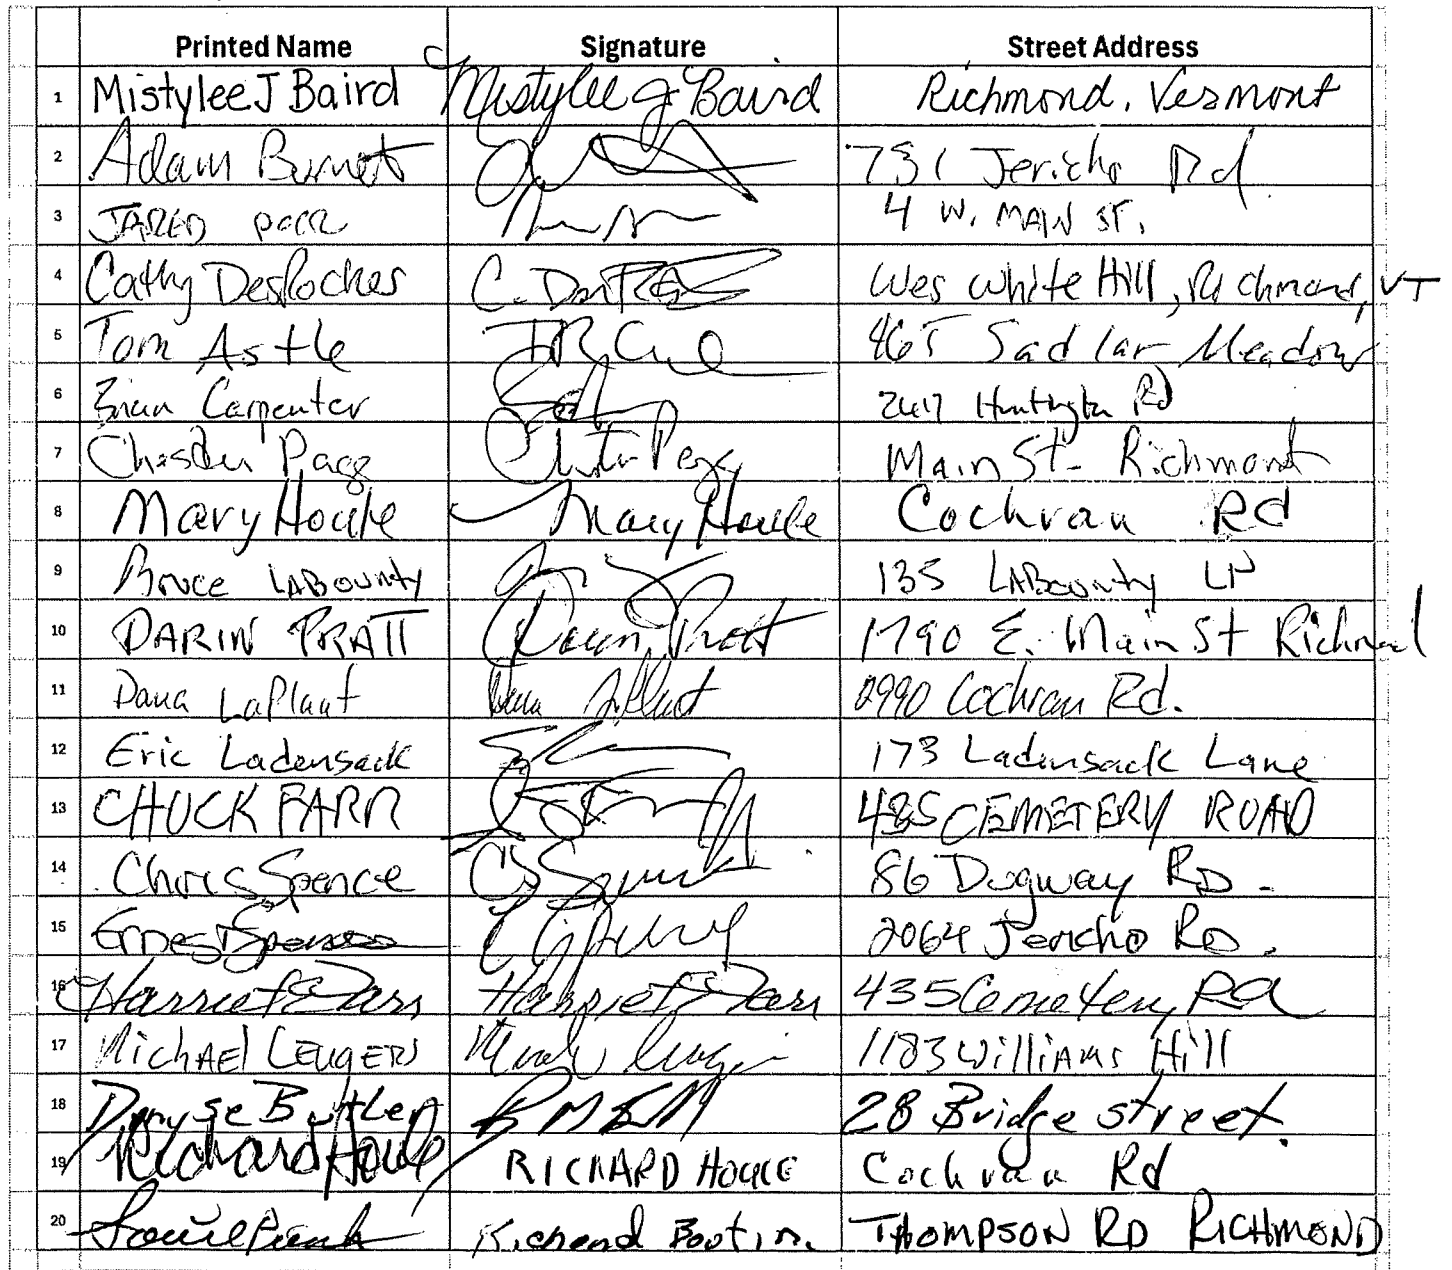 Printed Name Signature Street Address
1 Mistylee J Baird Mistylee J Baird Richmond, Vermont
2 Adam Burnett 731 Jericho Rd
3 JARED 4 W. MAIN ST.
4 Cathy DesRoches Wes White Hill, Richmond, VT
5 Tom Astle Sadlar Meadow
6 Brian Carpenter Huntington Rd
7 Chester Page Main St. Richmond
8 Mary Houle Mary Houle Cochran Rd
9 Bruce LABOUNTY 135 LABounty LN
10 DARIN PRATT Darin Pratt 1790 E. Main St Richmond
11 Dana LaPlant 2990 Cochran Rd.
12 Eric Ladensack 173 Ladensack Lane
13 CHUCK FARR CEMETERY ROAD
14 Chris Spence 86 Dugway RD.
15 Ernest Spence 2064 Jericho RD.
16 Harriet Farr Harriet Farr 435 Cemetery Rd
17 Michael LEUGERS 1183 Williams Hill
18 Denyse Butler 28 Bridge street.
19 Richard Houle RICHARD HOULE Cochran Rd
20 Richard Boutin. THOMPSON RD RICHMOND